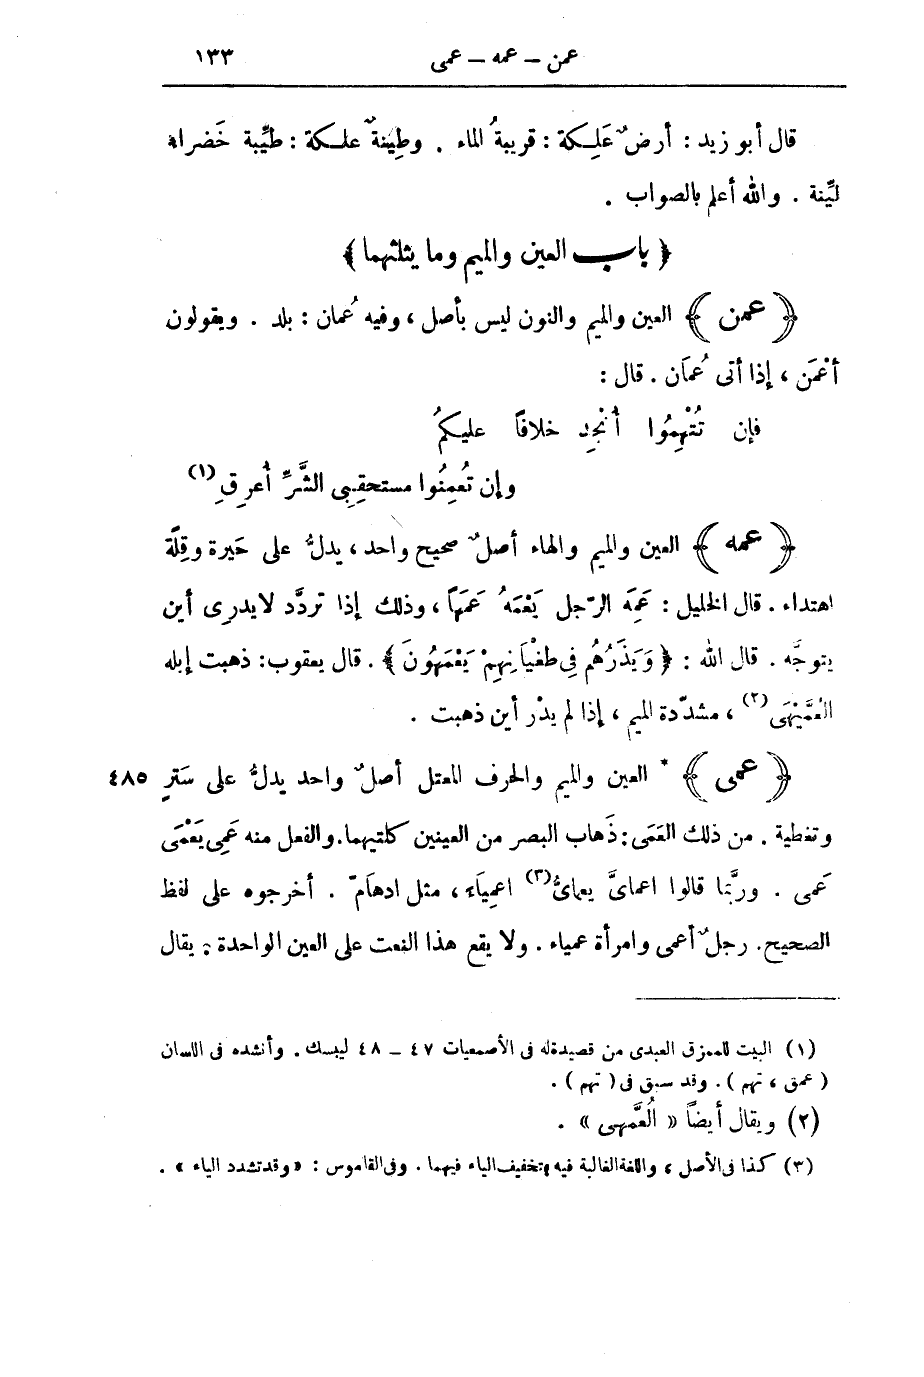 عمن – عمه – عمى ١٣٣
قال أبو زيد : أرضٌ عَلِكة : قريبةُ الماء . وطِينةٌ علكة : طيِّبة خَضراء
ليِّنة . والله أعلم بالصواب .
﴿ باب العين والميم وما يثلثهما ﴾
﴿ عمن ﴾ العين والميم والنون ليس بأصل ، وفيه عُمان : بلد . ويقولون
أعْمَن ، إذا أتى عُمَان . قال :
فإن تُتْهِمُوا أُنْجِد خلافاً عليكمُ
وإن تُعمِنُوا مستحقِبِى الشَّرِّ أُعرِقِ (١)
﴿ عمه ﴾ العين والميم والهاء أصلٌ صحيح واحد ، يدلُّ على حَيرة وقِلّة
اهتداء . قال الخليل : عَمِهَ الرّجل يَعْمَهُ عَمَهاً ، وذلك إذا تردَّد لا يدرى أين
يتوجَّه . قال الله : ﴿ وَيَذَرُهُمْ فِى طغْيَانِهِمْ يَعْمَهُونَ ﴾ . قال يعقوب : ذهبت إبله
العُمَّيْهَى (٢) ، مشدّدة الميم ، إذا لم يدْر أين ذهبت .
﴿ عمى ﴾ * العين والميم والحرف المعتل أصلٌ واحد يدلُّ على سَترٍ ٤٨٥
وتغطية . من ذلك العَمَى : ذَهاب البصر من العينين كلتيهما . والفعل منه عَمِى يَعْمَى
عَمى . وربَّما قالوا اعمائَّ يعمائُّ (٣) اعمِيَاء ، مثل ادهَامّ . أخرجوه على لفظ
الصحيح . رجلٌ أعمى وامرأة عمياء . ولا يقع هذا النعت على العين الواحدة ; يقال
(١) البيت للممزق العبدى من قصيدة له فى الأصمعيات ٤٧ – ٤٨ ليبسك . وأنشده فى اللسان
( عمق ، تهم ) . وقد سبق فى ( تهم ) .
(٢) ويقال أيضاً « العُمَّهى » .
(٣) كذا فى الأصل ، واللغة الغالبة فيه بتخفيف الياء فيهما . وفى القاموس : « وقد تشدد الياء » .